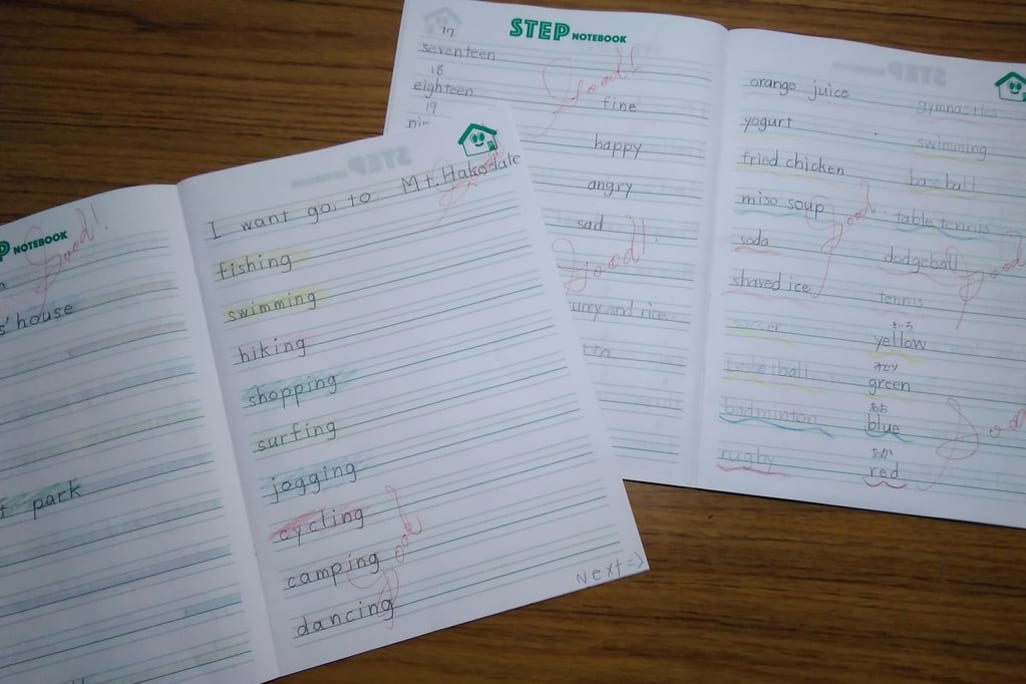 NOTEBOOK
Good!
house
park
I want go to Mt. Hakodate
fishing
swimming
hiking
shopping
surfing
jogging
cycling
camping
dancing
Good
Next =>
STEP NOTEBOOK
17
seventeen
18
eighteen
19
Good!
fine
happy
angry
sad
Good!
curry and rice
orange juice
yogurt
fried chicken
miso soup
soda
shaved ice
Good
soccer
basketball
badminton
rugby
gymnastics
swimming
baseball
table tennis
dodgeball
tennis
Good
きいろ
yellow
みどり
green
あお
blue
あか
red
Good